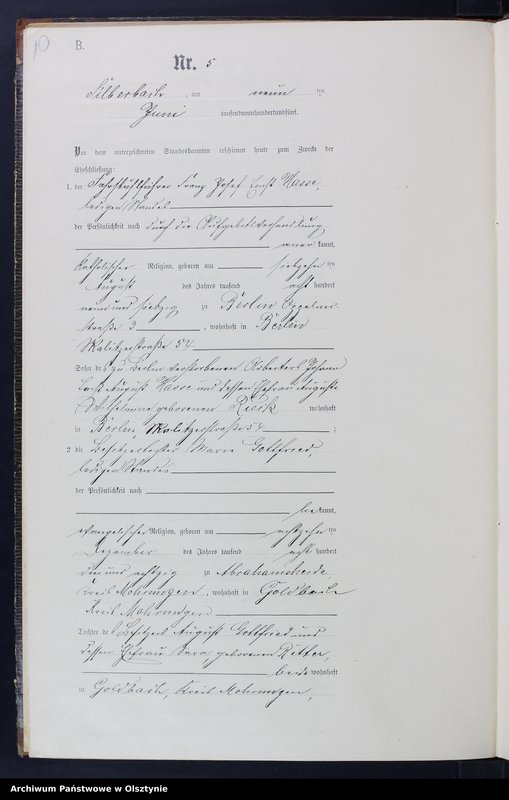 10
B.
Nr. 5
Silberbach, am neun ten
Juni tausendneunhundertundfünf.
Vor dem unterzeichneten Standesbeamten erschienen heute zum Zwecke der
Eheschließung:
1. der Fahrstuhlführer Franz Josef Ernst Hasse,
ledigen Standes
der Persönlichkeit nach durch die Aufgebotsverhandlung
aner kannt,
katholischer Religion, geboren am siebzehn ten
August des Jahres tausend acht hundert
neun und siebzig zu Berlin Oppelner-
straße 3, wohnhaft in Berlin
Skalitzerstraße 54
Sohn des zu Berlin verstorbenen Arbeiters Johann
August Hasse und dessen Ehefrau Auguste
Wilhelmine geborenen wohnhaft
in Berlin, Skalitzerstraße 54;
2. die Besitzertochter Marie Gottfried,
ledigen Standes
der Persönlichkeit nach
be kannt,
evangelischer Religion, geboren am achtzehn ten
Dezember des Jahres tausend acht hundert
drei und achtzig zu Abrahamsheide
Kreis Mohrungen, wohnhaft in Goldbach
Kreis Mohrungen
Tochter des Besitzers August Gottfried und
dessen Ehefrau Sara geborenen Ritter,
beide wohnhaft
in Goldbach, Kreis Mohrungen,
Archiwum Państwowe w Olsztynie